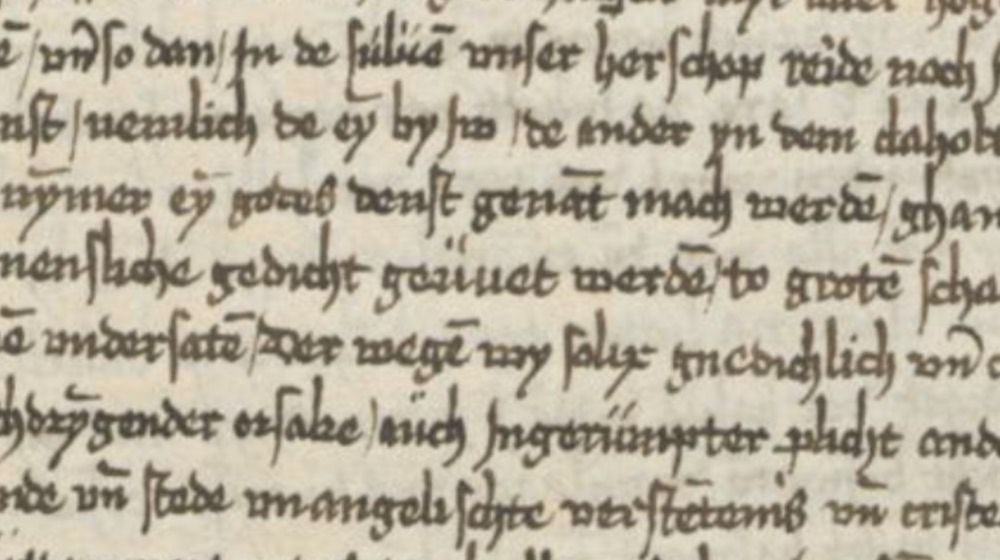 vn̄ so dan / Jn de süluē vnser herschop reide noch
nst / nemlich de eȳ by sw / de ander yn dem dahobe
nȳmer eȳ gotes denst genāt mach werdē / ghan
mensliche gedicht geüuet werdē / to grotē scha
ē vndersatē / Der wegē wy solix gnedichlich vn̄
hdrȳgender orsake / aüch Jngerümpter plicht ande
nde vn̄ stede vnangelischte verstētenis vn̄ criste